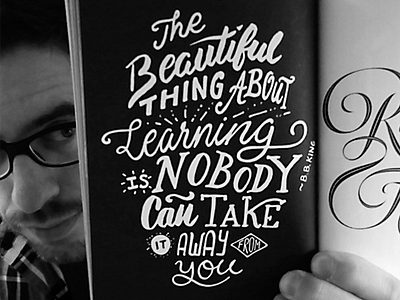 The
Beautiful
THING ABOUT
Learning
IS NOBODY
Can TAKE
IT AWAY FROM
you
~B.B. KING